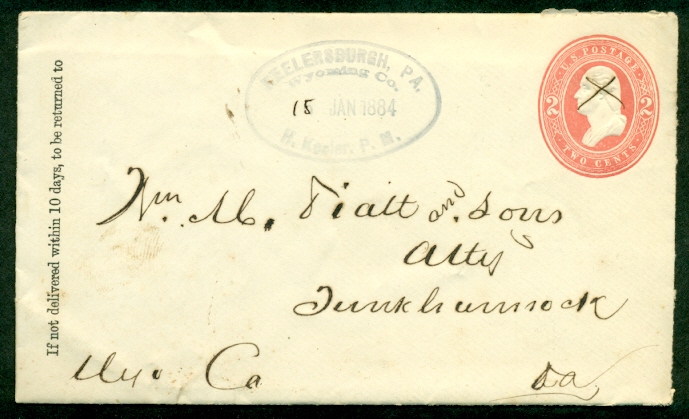 If not delivered within 10 days, to be returned to
KEELERSBURGH, PA.
Wyoming Co.
15 JAN 1884
H. Keeler, P. M.
U.S. POSTAGE
2 2
TWO CENTS
Wm. M. Piatt and Sons
Attys
Tunkhannock
Wyo. Co Pa